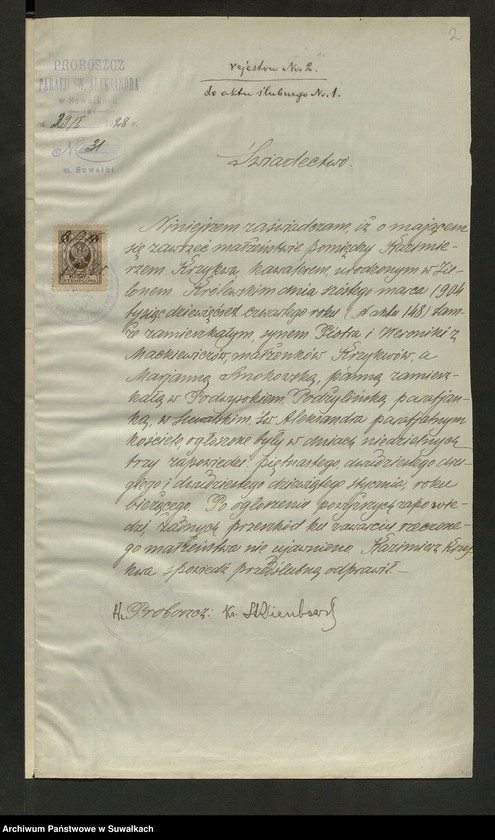 2
PROBOSZCZ
PARAFJI ŚW. ALEKSANDRA
w Suwałkach
d. 29/I 1928 r.
№ 31
m. Suwałki
rejestru Nr. 2.
do aktu ślubnego Nr. 1.
Świadectwo.
Niniejszem zaświadczam, iż o mającem
się zawrzeć małżeństwie pomiędzy Kazimie-
rzem Krzykwą, kawalerem, urodzonym w Zie-
lonem Królewskiem dnia szóstego marca 1904
tysiąc dziewięćset czwartego roku (N aktu 148) tam-
że zamieszkałym, synem Piotra i Weroniki z
Mackiewiczów, małżonków Krzykwów, a
Marjanną Smokowską, panną zamiesz-
kałą w Podwysokiem, parafjan-
ką, w Suwalkim Św. Aleksandra parafjalnym
kościele, ogłoszone były w dniach niedzielnych
trzy zapowiedzi: piętnastego, dwudziestego dru-
giego i dwudziestego dziewiątego stycznia, roku
bieżącego. Po ogłoszeniu powyższych zapowie-
dzi, żadnych przeszkód ku zawarciu rzeczone-
go małżeństwa nie ujawniono. Kazimierz Krzy-
kwa spowiedź przedślubną odprawił.—
Proboszcz: Ks.
Archiwum Państwowe w Suwałkach